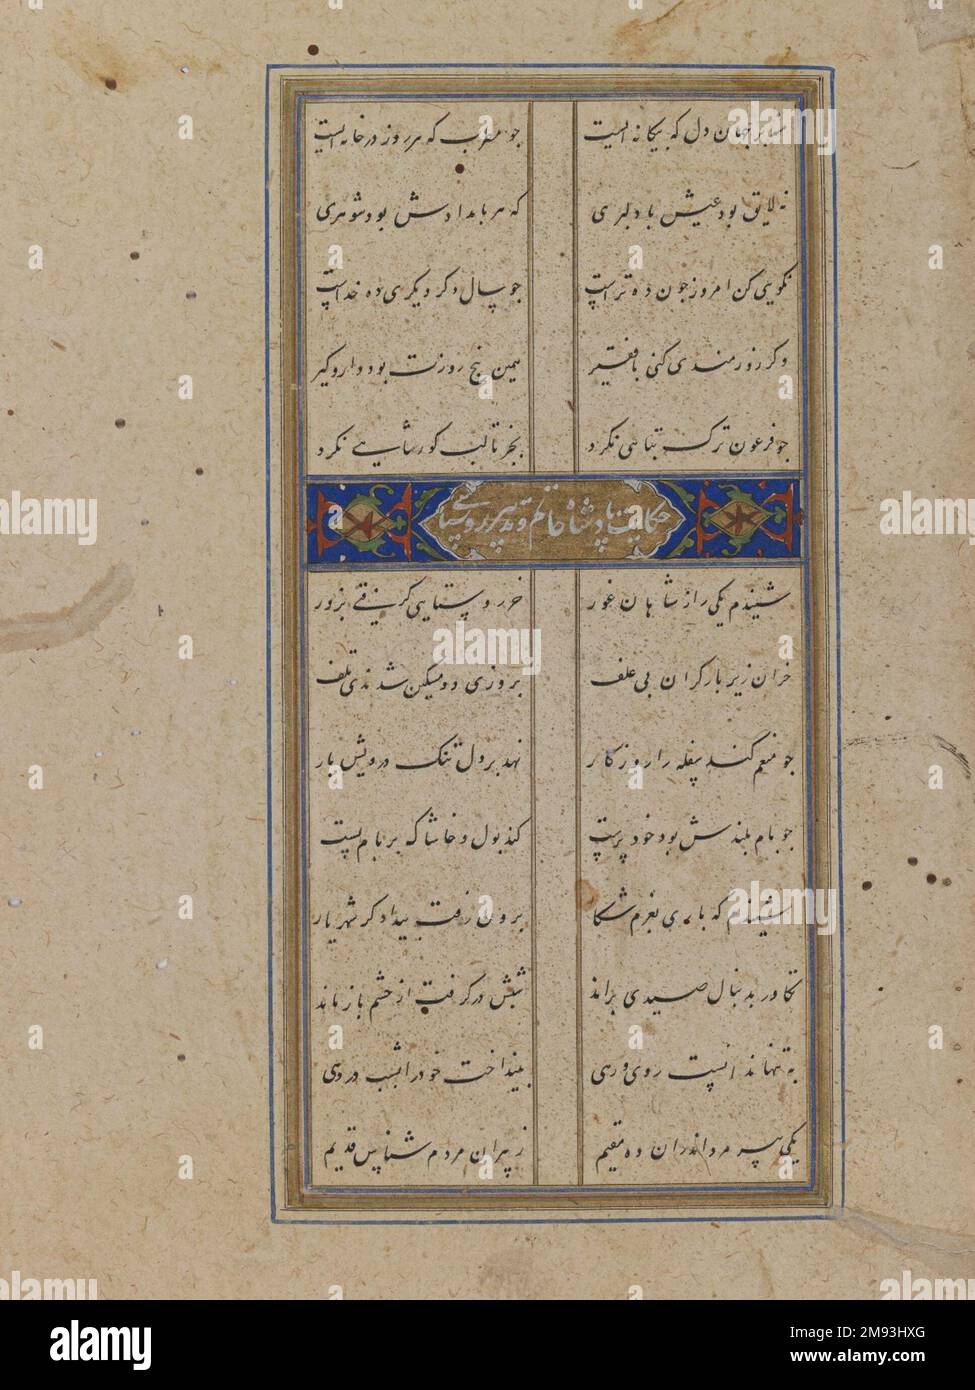 منه بر جهان دل که بیگانه ایست چو مطرب که هر روز در خانه ایست
نه لایق بود عیش با دلبری که هر بامدادش بود شوهری
نکویی کن امروز چون ده تراست چو سال دگر دیگری ده خداست
وکر زورمندی کنی با فقیر همین پنج روزت بود دار و کیر
چو فرعون ترک تباهی نکرد بجز تا لب کور شاهی نکرد
حکایت پادشاه ظالم و پیر روستایی
شنیدم یکی را ز شاهان غور خر روستایی کرفتی بزور
خران زیر بار کران بی علف بروزی دو مسکین شدندی تلف
چو منعم کند سفله را روزکار نهد بر دل تنک درویش بار
چو بام بلندش بود خود پرست کند بول و خاشاک بر بام پست
شنیدم که باری بعزم شکار برون رفت بیدادکر شهریار
تکاور بدنبال صیدی براند شبش درکرفت از حشم باز ماند
به تنها ندانست روی و رهی بینداخت خود را شب در دهی
یکی پیر مرد اندران ده مقیم ز پیران مردم شناس قدیم
alamy
alamy
alamy
Image ID: 2M93HXG
www.alamy.com